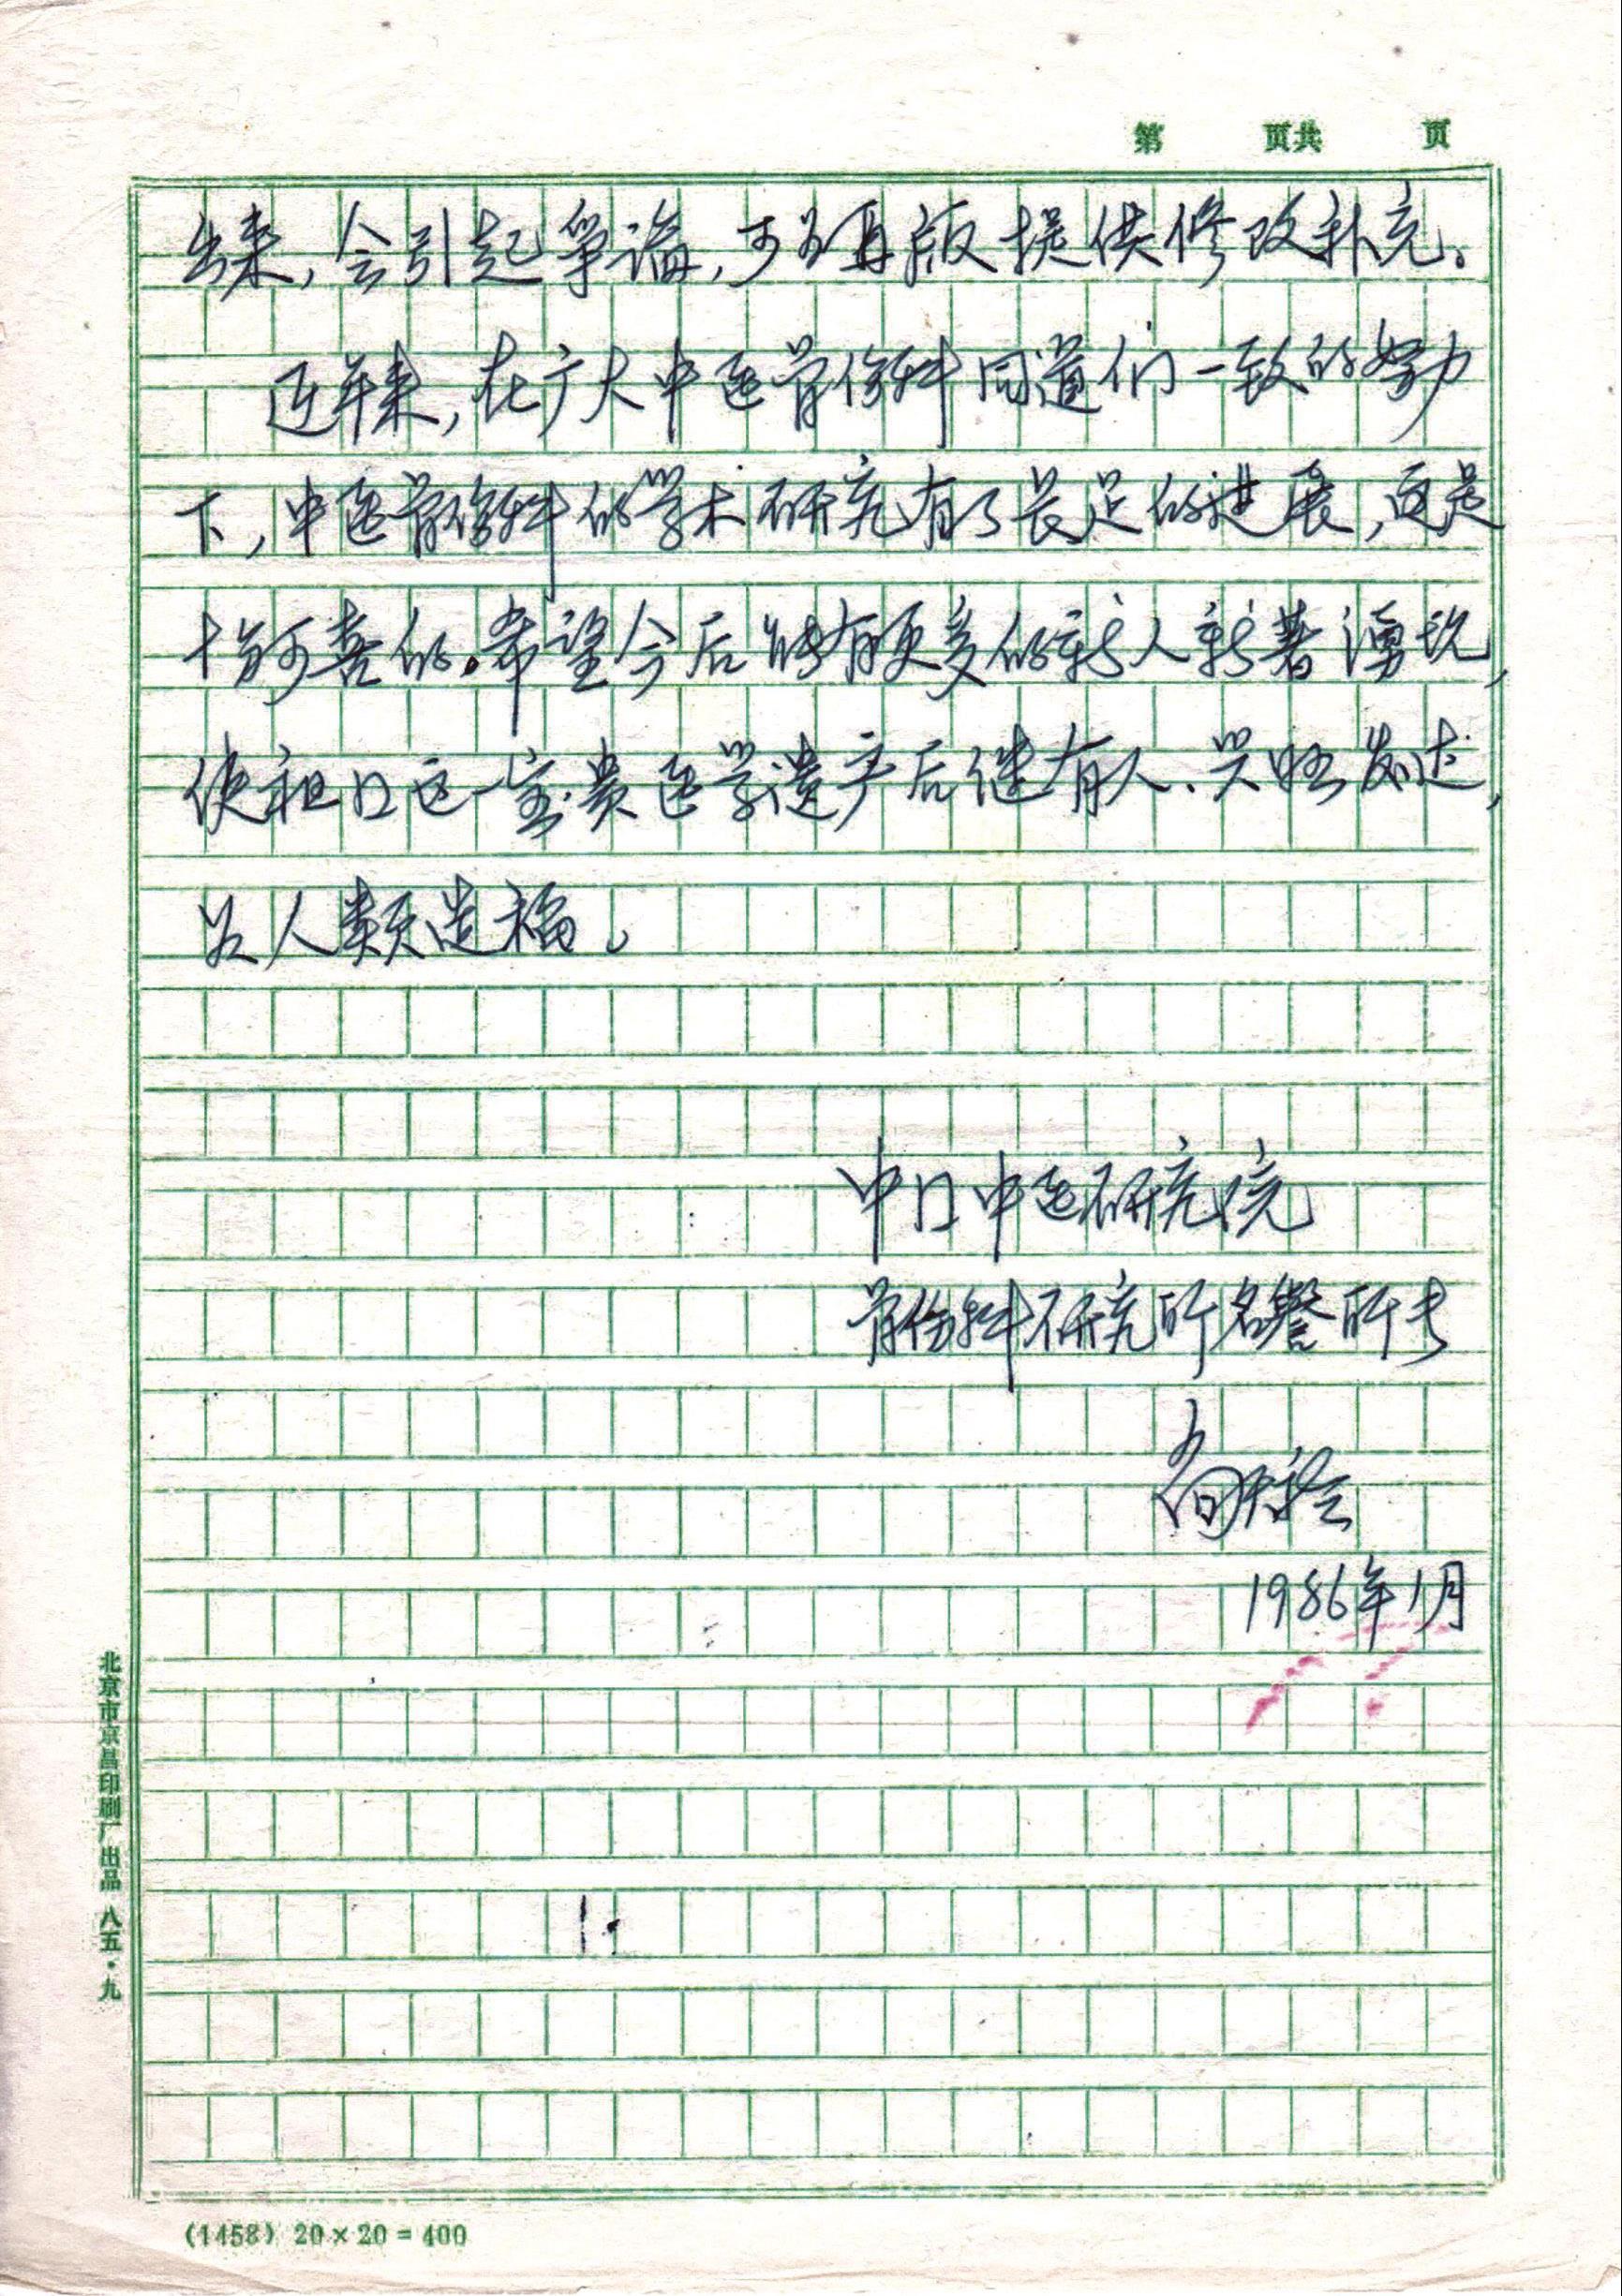 第 页共 页
出来，会引起争论，可为再版提供修改补充。
近年来，在广大中医骨伤科同道们一致的努力
下，中医骨伤科的学术研究有了长足的进展，这是
十分可喜的。希望今后能有更多的新人新著涌现，
使祖国这一宝贵医学遗产后继有人、兴旺发达，
为人类造福。
中国中医研究院
骨伤科研究所名誉所长
尚天裕
1986年1月
北京市京昌印刷厂出品 八五·九
(1458) 20×20=400